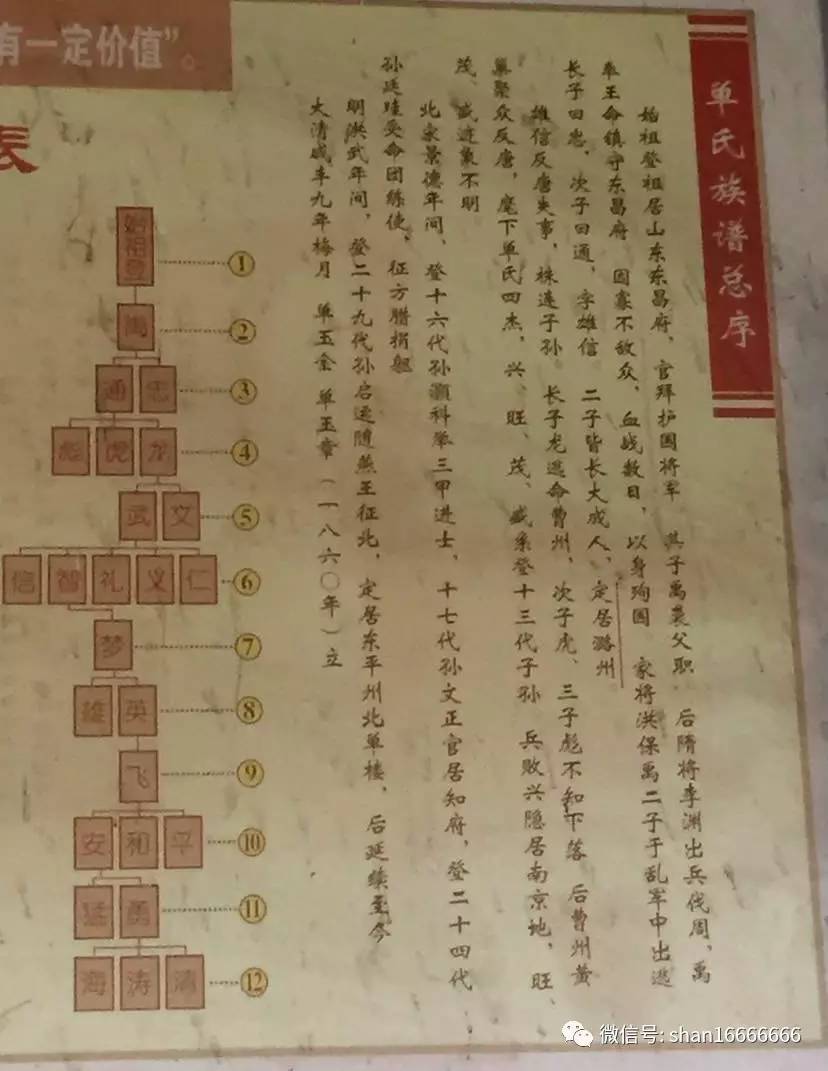 单氏族谱总序
始祖登祖居山东东昌府，官拜护国将军 其子禹袭父职 后隋将李渊出兵伐周，禹
奉王命镇守东昌府 因寡不敌众，血战数日，以身殉国 家将洪保禹二子于乱军中出逃
长子曰忠，次子曰通，字雄信 二子皆长大成人，定居潞州
雄信反唐失事，株连子孙 长子龙逃命曹州，次子虎、三子彪不知下落 后曹州黄
巢聚众反唐，麾下单氏四杰，兴、旺、茂、盛系登十三代子孙 兵败兴隐居南京地，旺、
茂、盛迹象不明
北宋景德年间，登十六代孙灏科举三甲进士，十七代孙文正官居知府，登二十四代
孙廷珪受命团练使，征方腊捐躯
明洪武年间，登二十九代孙启运随燕王征北，定居东平州北单楼，后延续至今
大清咸丰九年梅月 单玉金 单玉章（一八六〇年）立
有一定价值”。
表
始祖登 ①
陶 ②
通 忠 ③
彪 虎 龙 ④
武 文 ⑤
信 智 礼 义 仁 ⑥
梦 ⑦
雄 英 ⑧
飞 ⑨
安 和 平 ⑩
猛 勇 ⑪
海 涛 清 ⑫
微信号: shan16666666